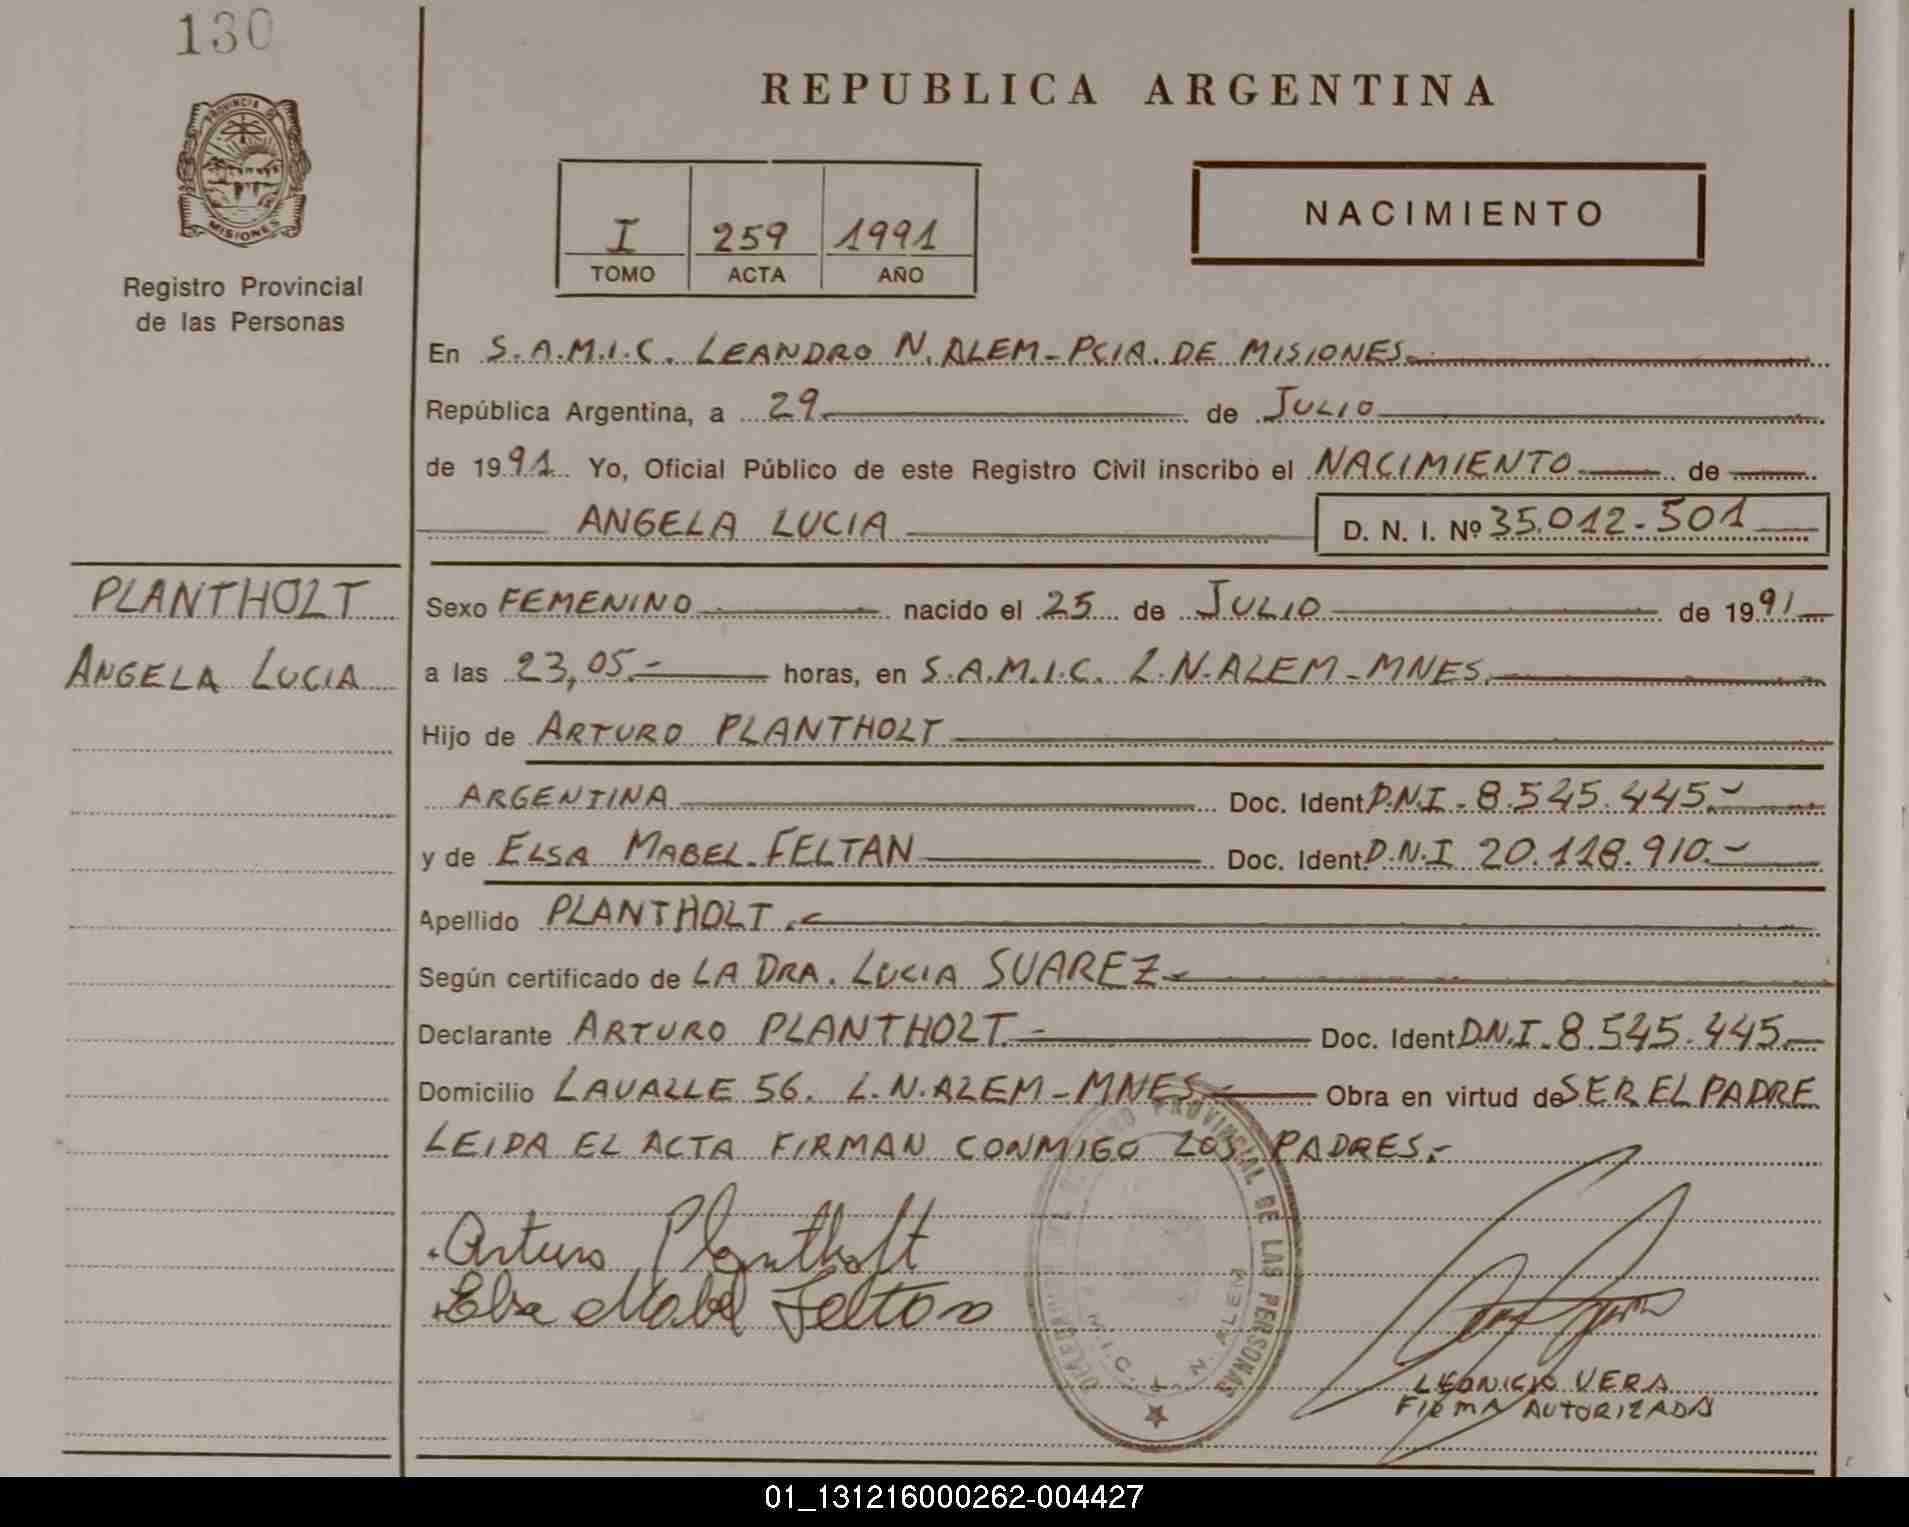 130
PROVINCIA DE
MISIONES
Registro Provincial
de las Personas
REPUBLICA ARGENTINA
I 259 1991
TOMO ACTA AÑO
NACIMIENTO
En S.A.M.I.C. LEANDRO N. ALEM - PCIA. DE MISIONES
República Argentina, a 29 de JULIO
de 1991 Yo, Oficial Público de este Registro Civil inscribo el NACIMIENTO de
ANGELA LUCIA D. N. I. Nº 35.012-501
PLANTHOLT
ANGELA LUCIA
Sexo FEMENINO nacido el 25 de JULIO de 1991
a las 23,05.- horas, en S.A.M.I.C. L.N. ALEM - MNES.
Hijo de ARTURO PLANTHOLT
ARGENTINA Doc. Ident. D.N.I - 8.545.445.-
y de ELSA MABEL FELTAN Doc. Ident. D.N.I 20.118.910.-
Apellido PLANTHOLT.
Según certificado de LA DRA. LUCIA SUAREZ
Declarante ARTURO PLANTHOLT.- Doc. Ident D.N.I. 8.545.445.-
Domicilio LAVALLE 56. L.N. ALEM - MNES Obra en virtud de SER EL PADRE
LEIDA EL ACTA FIRMAN CONMIGO LOS PADRES.-
Arturo Plantholt
Elsa Mabel Feltan
PROVINCIAL DE LAS PERSONAS
N. ALEM
LEONICIO VERA
FIRMA AUTORIZADA
01_131216000262-004427